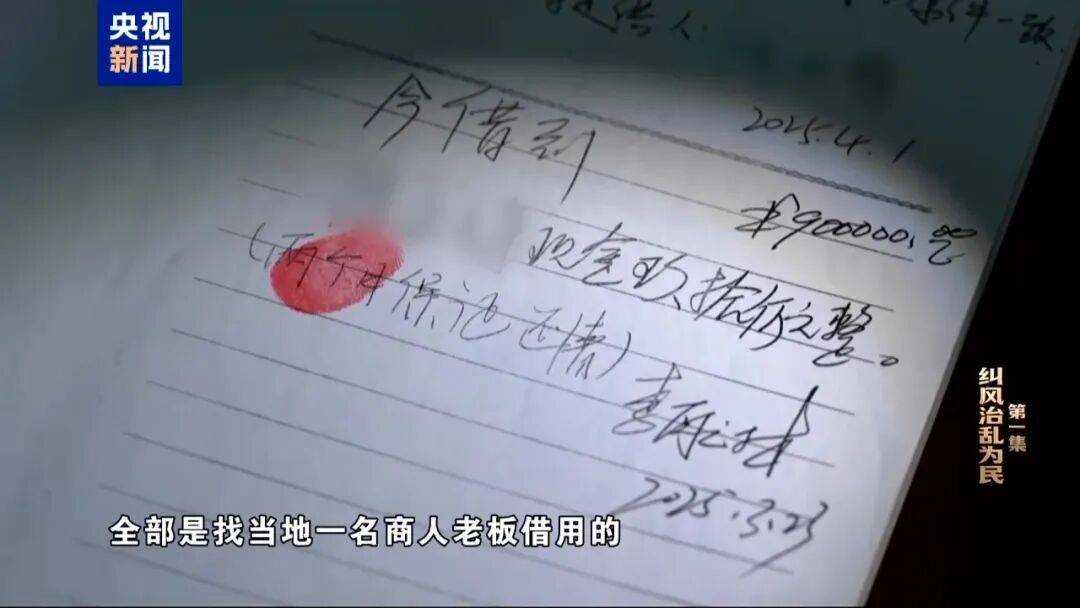 央视
新闻
提供人
件一致
2025.4.1
今借到
¥900000.
现金玖拾万元整。
(两个月保证还清)
2025.3.23
纠风治乱为民
第一集
全部是找当地一名商人老板借用的